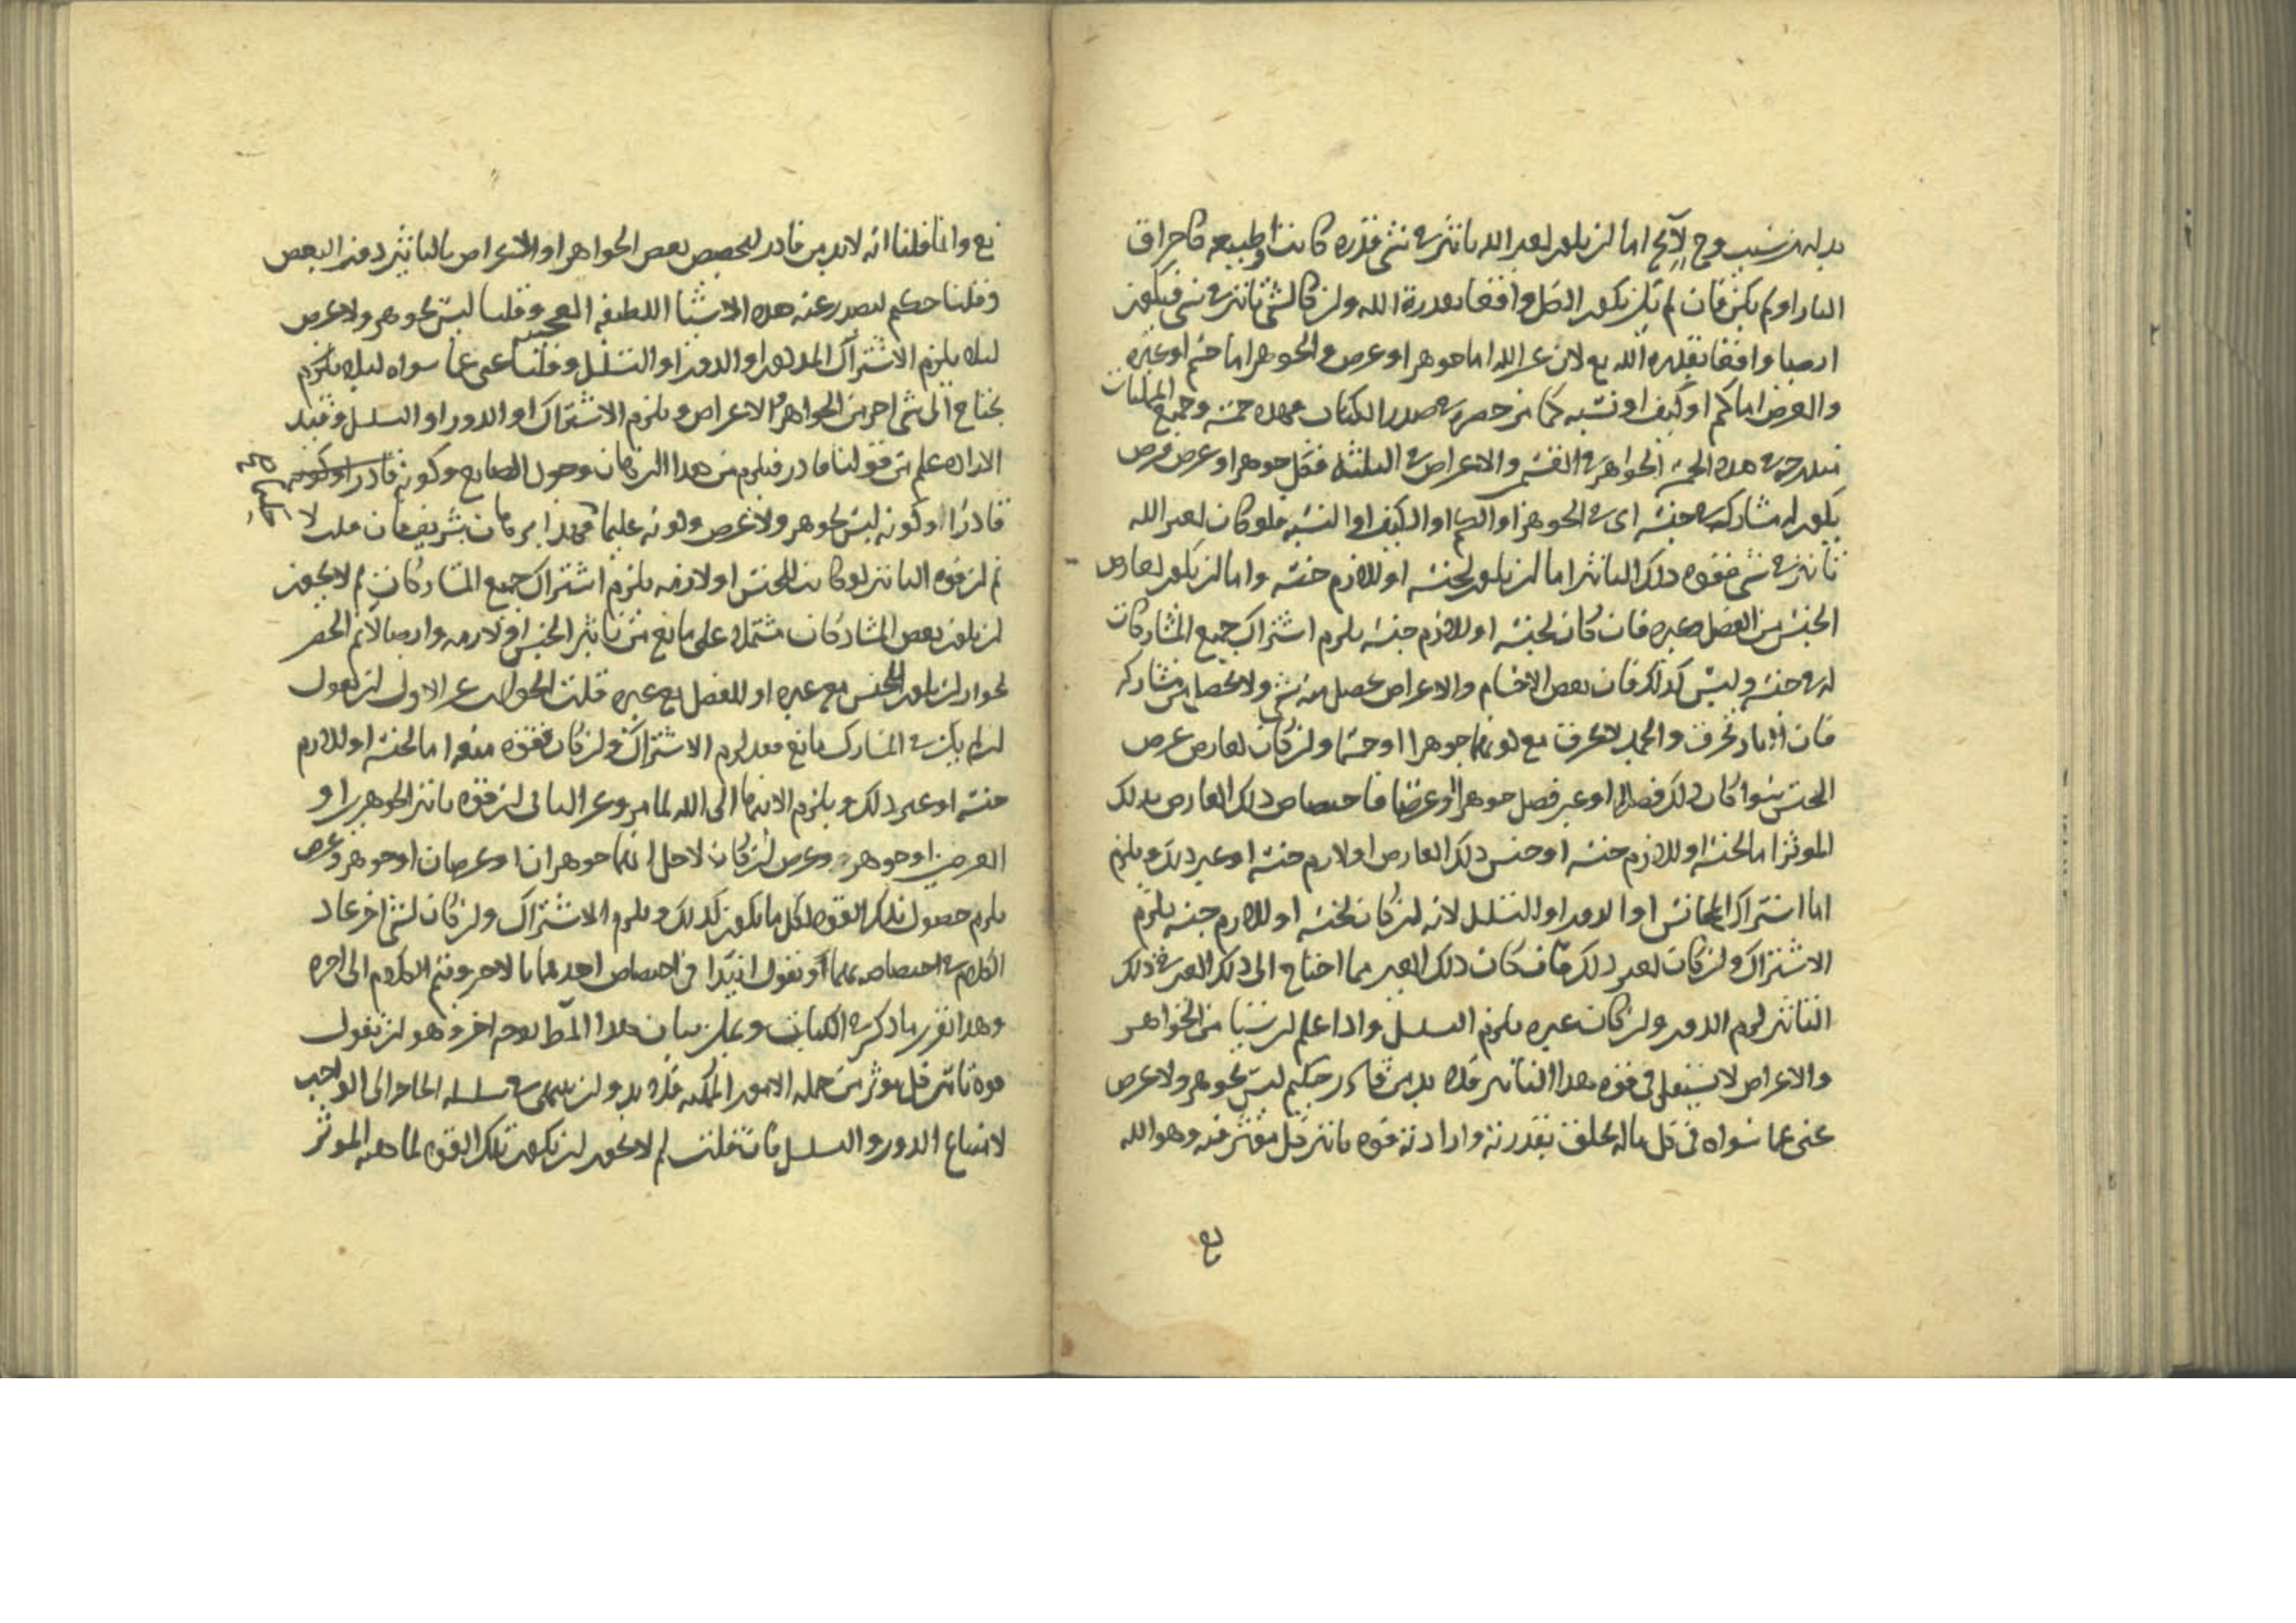 بد له من سبب وح لا يخ اما ان يكون لغير الله تاثير في شي قدرة كانت او طبيعة كاحراق
النار او لم يكن فان لم يكن يكون الكل واقعا بقدرة الله وان كان لشي تاثير في شي فيكون
ايضا واقعا الله تع لان غير الله اما جوهر او عرض والجوهر اما جسم او غيره
والعرض اما كم او كيف او نسبة كما حصره في صدر الكتاب فهذه خمسة وجميع الممكنات
في هذه الخمسة الجواهر في القسمين والاعراض في الثلثة فكل جوهر او عرض فرض
يكون له مشارك في جنسه اي في الجوهر او الكم او الكيف او النسبة فلو كان لغير الله
تاثير في شي فقوة ذلك التاثير اما ان يكون لجنسه او للازم جنسه واما ان يكون لعارض
الجنس من الفصل وغيره فان كان لجنسه او للازم جنسه يلزم اشتراك جميع المشاركات
له في جنسه وليس كذلك فان بعض الاجسام والاعراض يحصل منه شي ولا يحصل من مشاركه
فان النار تحرق والجمد لا يحرق مع كونهما جوهرا او جسما وان كان لعارض عرض
الجنس سوا كان ذلك فصلا او غير فصل جوهرا او عرضا فاختصاص ذلك العارض بذلك
الموثر اما لجنسه او للازم جنسه او جنس ذلك العارض او لازم جنسه او غير ذلك ويلزم
اما اشتراك المجانس او الدور او التسلسل لانه ان كان لجنسه او للازم جنسه يلزم
الاشتراك وان كان لغير ذلك فان كان ذلك الغير مما احتاج الى ذلك الغير في ذلك
التاثير لزم الدور وان كان غيره يلزم التسلسل واذا علم ان شيا من الجواهر
والاعراض لا يستقل في قوة هذا التاثير فلا بد من قادر حكيم ليس بجوهر ولا عرض
غني عما سواه في كل ماله يخلق بقدرته وارادته قوة تاثير كل موثر فيه وهو الله
تع
تع وانما قلنا انه لا بد من قادر لتخصيص بعض الجواهر او الاعراض بالتاثير دون البعض
وقلنا حكيم ليصدر عنه هذه الاشيا اللطيفة العجيبة وقلنا ليس بجوهر ولا عرض
ليلا يلزم الاشتراك المذكور او الدور او التسلسل وقلنا غني عما سواه ليلا يلزم
يحتاج الى شي اخر من الجواهر والاعراض ويلزم الاشتراك او الدور او التسلسل وقيد
الارادة علم من قولنا قادر فيلزم من هذا البرهان وجود الصانع وكونه قادرا وكونه
قادرا وكونه ليس بجوهر ولا عرض وكونه عليما فهذا برهان شريف فان قلت لا
ثم ان قوة التاثير لو كانت للجنس او لازمه يلزم اشتراك جميع المشاركات لم لا يجوز
ان يكون بعض المشاركات مشتملة على مانع من تاثير الجنس او لازمه وايضا لا نم الحصر
لجواز ان يكون للجنس مع غيره او للفصل مع غيره قلت الجواب عن الاول ان نقول
ان لم يكن في المشارك مانع فقد لزم الاشتراك وان كان فقوة منعه اما لجنسه او للازم
جنسه او غير ذلك ويلزم الانتها الى الله لما مر وعن الثاني ان قوة تاثير الجوهرين او
العرضين او جوهر وعرض ان كان لاجل انهما جوهران او عرضان او جوهر وعرض
يلزم حصول تلك القوة لكل ما يكون كذلك ويلزم الاشتراك وان كان لشي اخر عاد
الكلام في اختصاصه بهما او نقول ابتدا في اختصاص احدهما بالاخر ونتم الكلام الى اخره
وهذا تقرير ما ذكر في الكتاب ويمكن بيان هذا المط بوجه اخر وهو ان نقول
قوة تاثير كل موثر من جملة الامور الممكنة فلا بد وان ينتهي في سلسلة الحاجة الى الواجب
لامتناع الدور والتسلسل فان قلت لم لا يجوز ان يكون تلك القوة لماهية الموثر